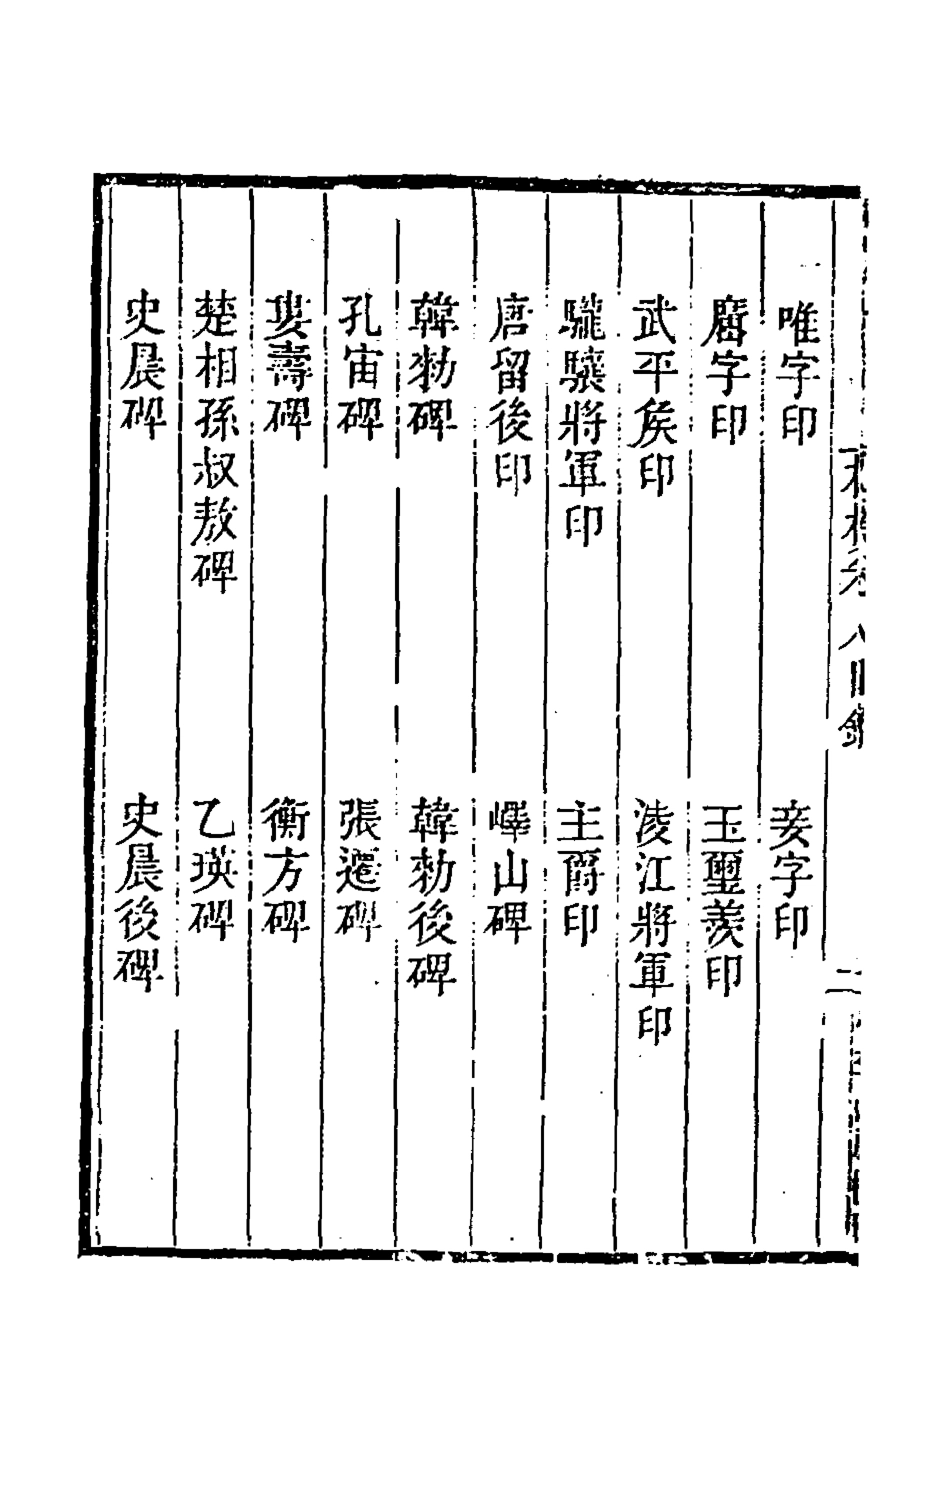 卷八目錄
二
唯字印　妾字印
字印　玉璽羨印
武平矦印　淩江將軍印
䮾驤將軍印　主爵印
唐留後印　嶧山碑
韓勑碑　韓勑後碑
孔宙碑　張遷碑
婁壽碑　衡方碑
楚相孫叔敖碑　乙瑛碑
史晨碑　史晨後碑